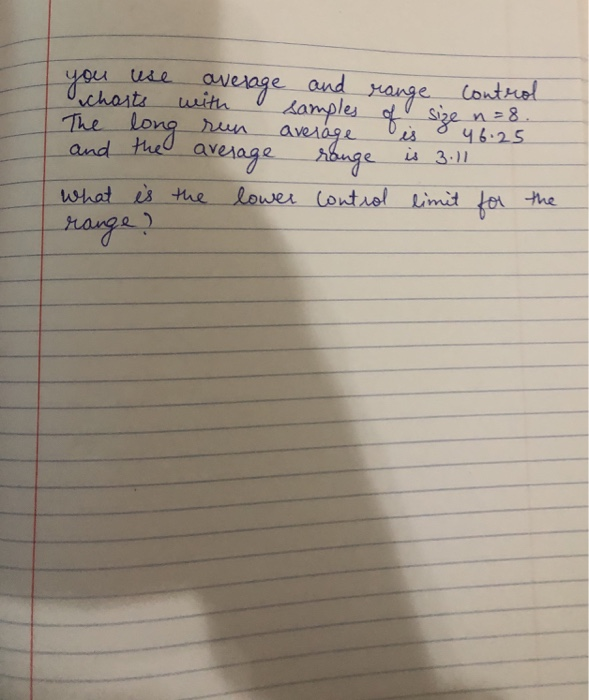 you use average and range control
charts with samples of size n = 8.
The long run average is 46.25
and the average range is 3.11
What is the lower control limit for the
range?